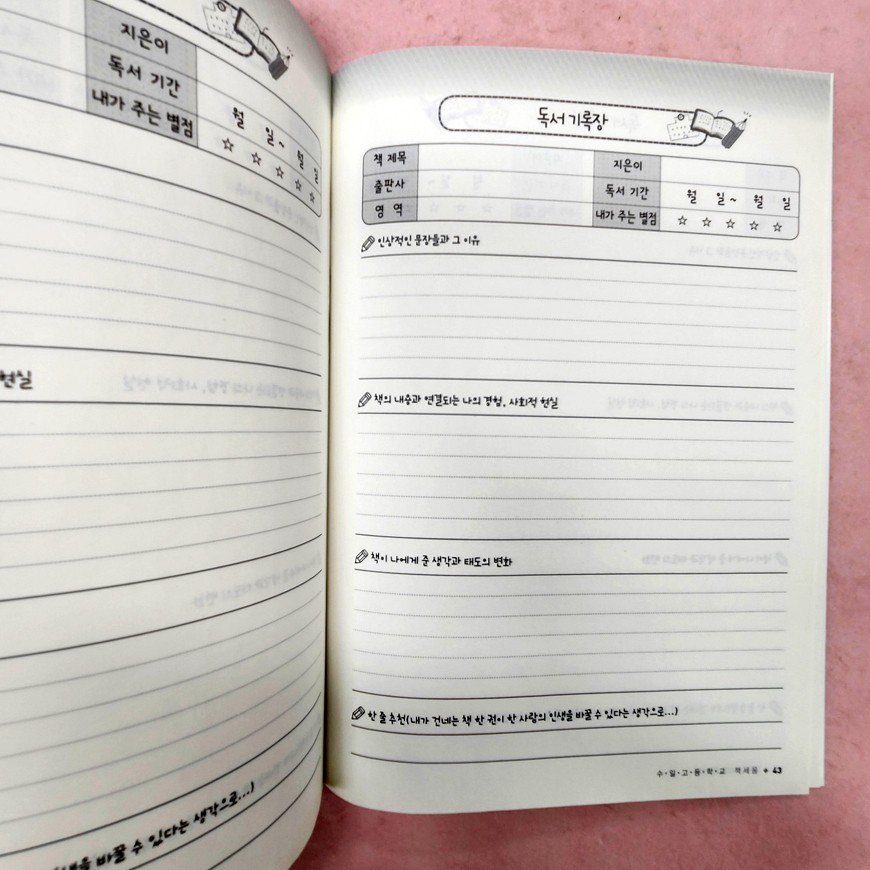 지은이
독서 기간
월 일~ 월 일
내가 주는 별점
☆ ☆ ☆ ☆ ☆
현실
을 바꿀 수 있다는 생각으로...)
독서 기록장
책 제목 지은이
출판사 독서 기간 월 일~ 월 일
영 역 내가 주는 별점 ☆ ☆ ☆ ☆ ☆
인상적인 문장들과 그 이유
책의 내용과 연결되는 나의 경험, 사회적 현실
책이 나에게 준 생각과 태도의 변화
한 줄 추천(내가 건네는 책 한 권이 한 사람의 인생을 바꿀 수 있다는 생각으로...)
수·일·고·등·학·교 책세움 43